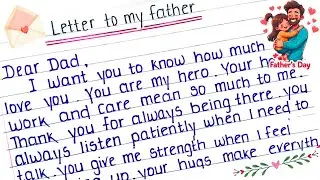 Letter to my father
Father's Day
Dear Dad,
I want you to know how much
love you. You are my hero. Your
work and care mean so much to me.
Thank you for always being there. you
always listen patiently when I need to
talk. you give me strength when I feel
up. your hugs make